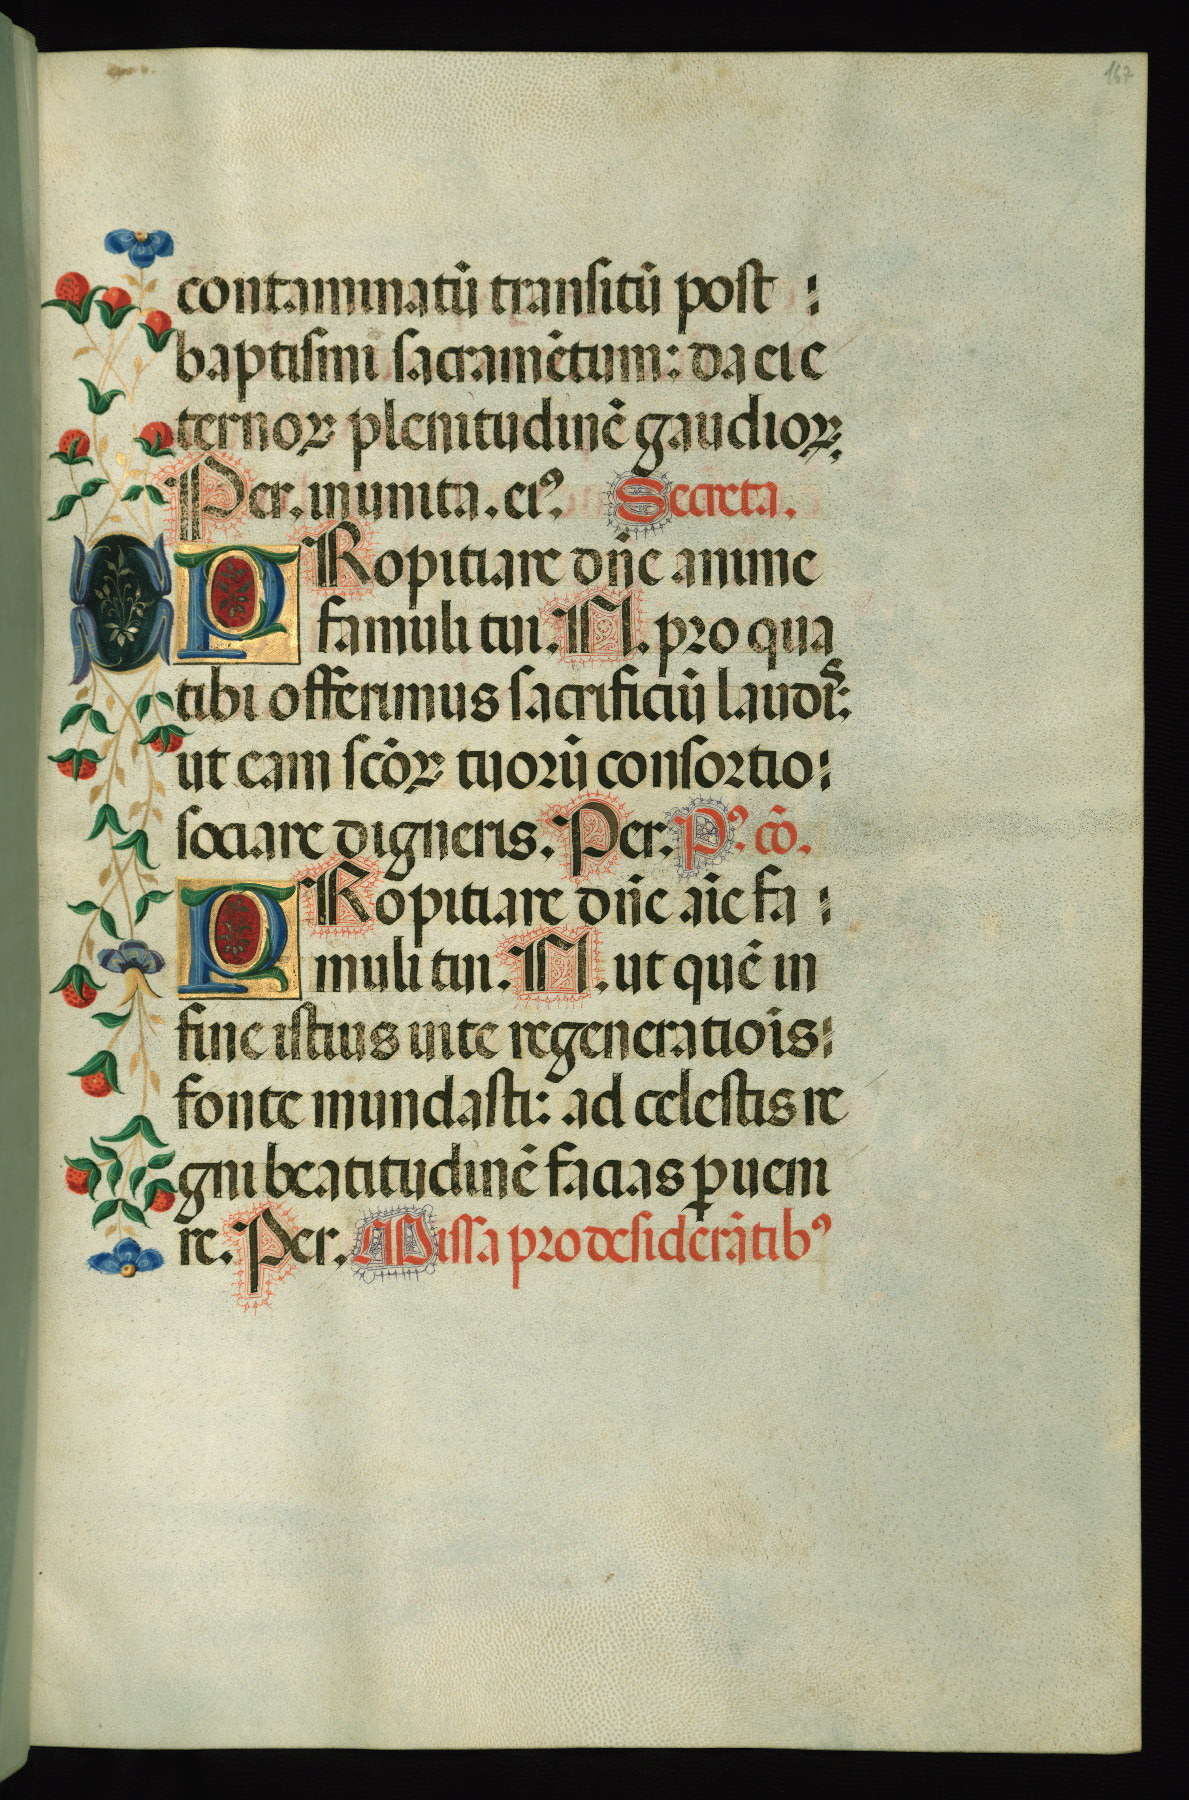 167
contaminatũ transitũ post :
baptismi sacramẽtum: da ei e
ternoꝝ plenitudinẽ gaudioꝝ.
Per. in unita. eiꝰ. Secreta.
PRopitiare dñe anime
famuli tui. N. pro qua
tibi offerimus sacrificiũ laudis:
ut eam scõꝝ tuorũ consortio:
sociare digneris. Per. Pꝰ. cõ.
PRopitiare dñe aĩe fa :
muli tui. N. ut quẽ in
fine istius uite regeneratiõis:
fonte mundasti: ad celestis re
gni beatitudinẽ facias ꝑueni
re. Per. Missa pro desiderãtibꝰ